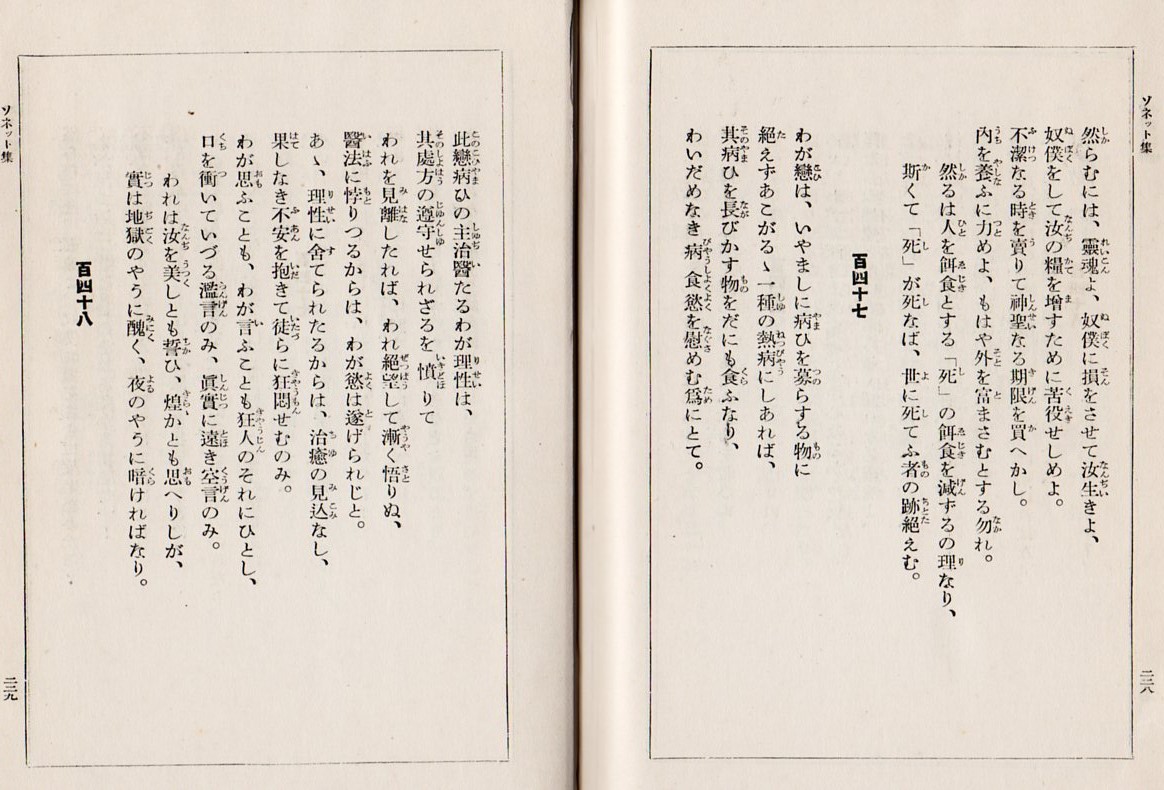 ソネット集
然らむには、靈魂よ、奴僕に損をさせて汝生きよ、
奴僕をして汝の糧を增すために苦役せしめよ。
不潔なる時を賣りて神聖なる期限を買へかし。
內を養ふに力めよ、もはや外を富まさむとする勿れ。
然るは人を餌食とする「死」の餌食を減ずるの理なり、
斯くて「死」が死なば、世に死てふ者の跡絕えむ。
百四十七
わが戀は、いやましに病ひを募らする物に
絕えずあこがるゝ一種の熱病にしあれば、
其病ひを長びかす物をだにも食ふなり、
わいだめなき病食慾を慰めむ爲にとて。
二三八
ソネット集
此戀病ひの主治醫たるわが理性は、
其處方の遵守せられざるを憤りて
われを見離したれば、われ絕望して漸く悟りぬ、
醫法に悖りつるからは、わが慾は遂げられじと。
あゝ、理性に舍てられたるからは、治癒の見込なし、
果しなき不安を抱きて徒らに狂悶せむのみ。
わが思ふことも、わが言ふことも狂人のそれにひとし、
口を衝いていづる濫言のみ、眞實に遠き空言のみ。
われは汝を美しとも誓ひ、煌かとも思へりしが、
實は地獄のやうに醜く、夜のやうに暗ければなり。
百四十八
二三九